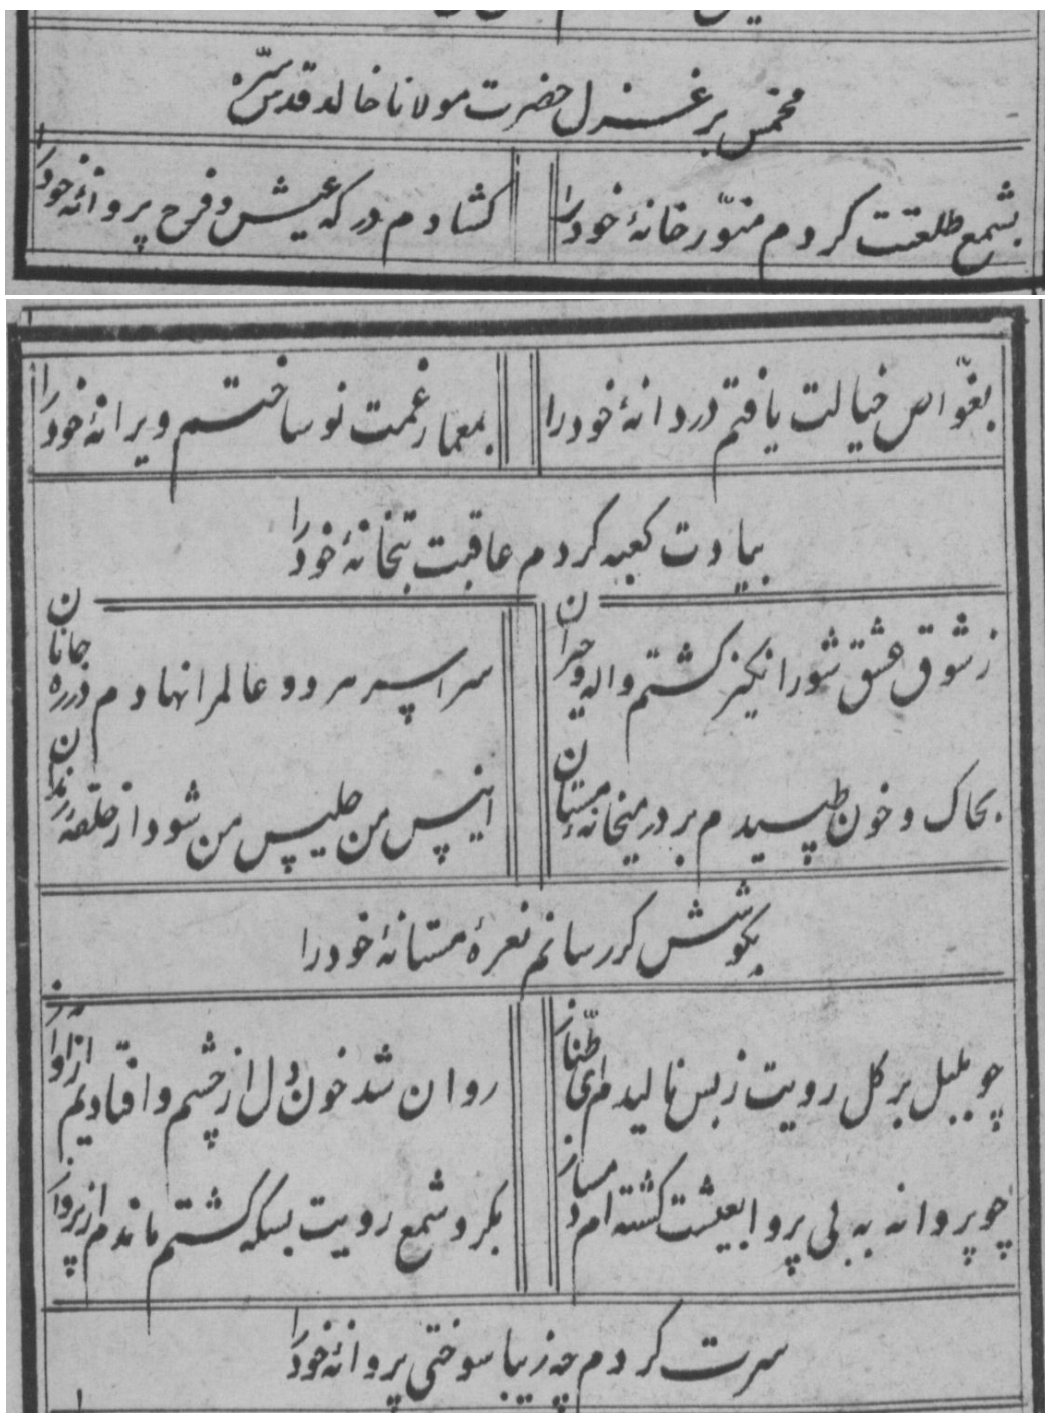 مخمس بر غزل حضرت مولانا خالد قدس سره
بشمع طلعتت کردم منوّر خانهٔ خود را
کشادم در که عیش و فرح پروانهٔ خود را
بغوّاص خیالت یافتم دردانهٔ خود را
بمعمار غمت نو ساختم ویرانهٔ خود را
بیادت کعبه کردم عاقبت بتخانهٔ خود را
ز شوق عشق شورانکیز کشتم واله و حیران
سراسر هر دو عالم را نهادم در ره جانان
بخاک و خون طپیدم بر در میخانهٔ مستان
انیس من جلیس من شود از حلقهٔ رندان
بکوشش کر رسانم نعرهٔ مستانهٔ خود را
چو بلبل بر کل رویت ز بس نالیدم ای طنّاز
روان شد خون دل از چشم و افتادیم از آواز
چو پروانه به بی پروا بعیشت کشته ام دمساز
بکرد شمع رویت بسکه کشتم ماندم از پرواز
سرت کردم چه زیبا سوختی پروانهٔ خود را